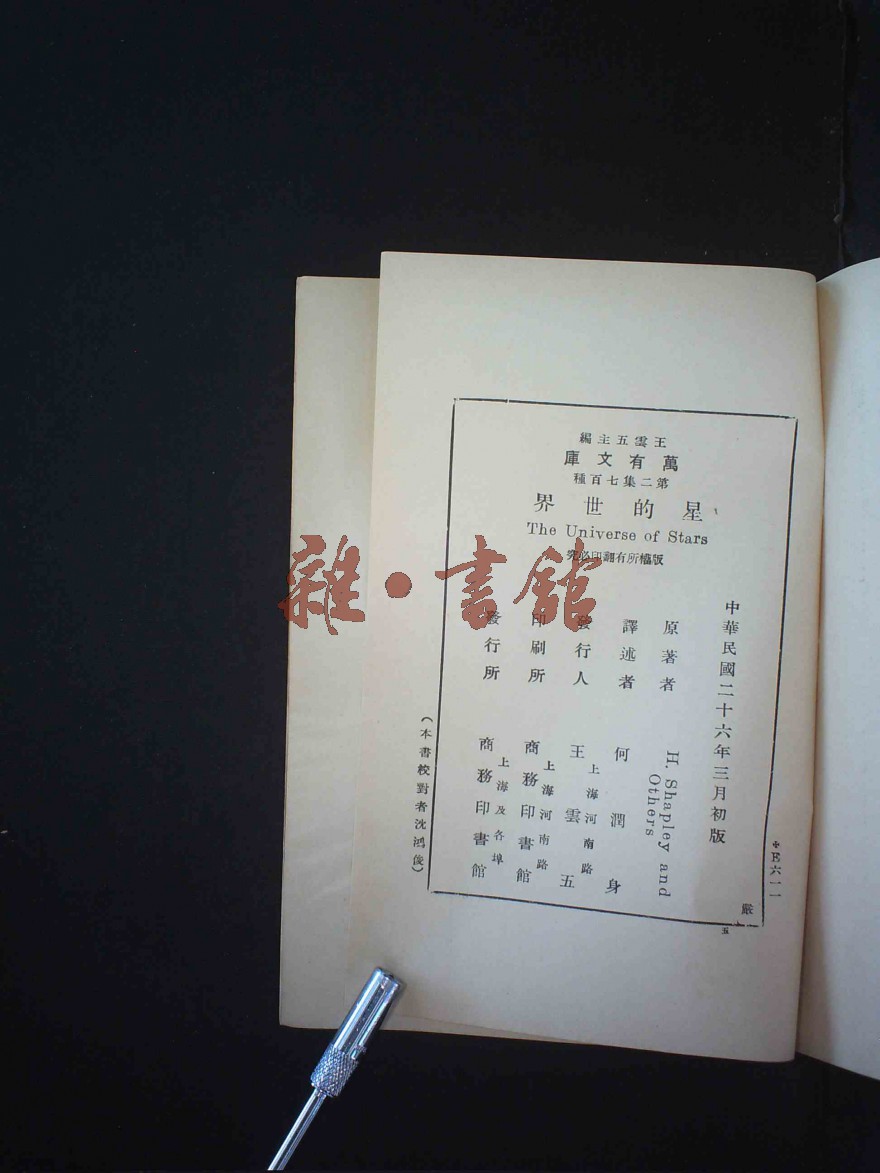 王雲五主編
萬有文庫
第二集七百種
星的世界
The Universe of Stars
版權所有翻印必究
中華民國二十六年三月初版
原著者 H. Shapley and Others
譯述者 何潤身
發行人 王雲五
上海河南路
印刷所 商務印書館
上海河南路
發行所 商務印書館
上海及各埠
(本書校對者沈鴻俊)
E六一一
嚴
五
雜·書館